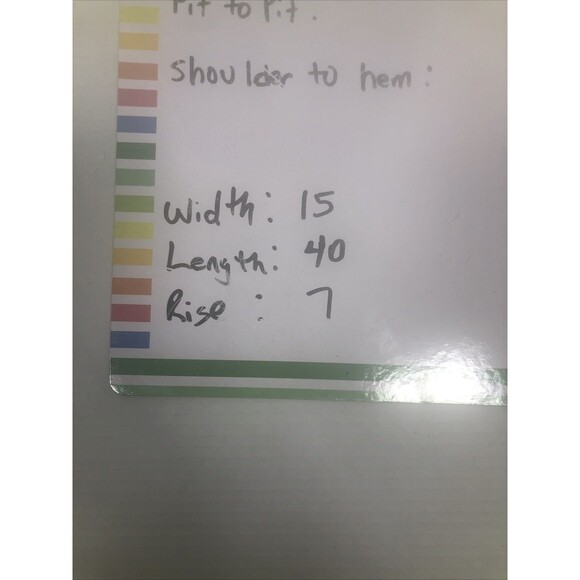 Pit to Pit.
Shoulder to hem:
Width: 15
Length: 40
Rise: 7